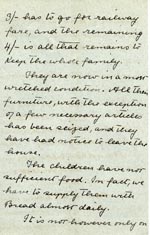 3/- has to go for railway
fare, and the remaining
4/- is all that remains to
keep the whole family.
They are now in a most
wretched condition. All their
furniture, with the exception
of a few necessary articles
has been seized, and they
have had notice to leave the
house.
The children have not
sufficient food. In fact, we
have to supply them with
Bread almost daily.
It is not however only on